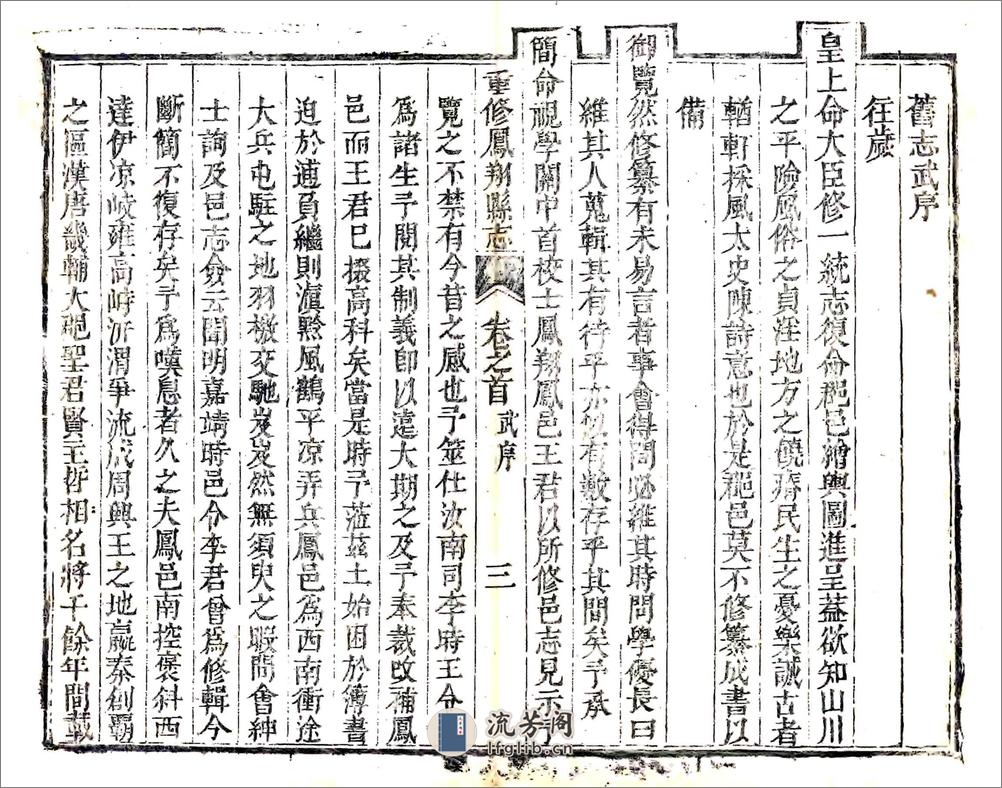 舊志武序
往歲
皇上命大臣修一統志復命郡邑繪輿圖進呈蓋欲知山川
之平險風俗之貞淫地方之饒瘠民生之憂樂誠古者
輶軒採風太史陳詩意也於是郡邑莫不修纂成書以
備
御覽然修纂有未易言者事會得問必維其時問學優長曰
維其人蒐輯其有待乎亦似有數存乎其間矣予承
簡命視學關中首校士鳳翔鳳邑王君以所修邑志見示予
重修鳳翔縣志 卷之首 武序 三
覽之不禁有今昔之感也予筮仕汝南司李時王君
為諸生予閱其制義即以遠大期之及予奉裁改補鳳
邑而王君已掇高科矣當是時予蒞茲土始困於簿書
迫於逋負繼則滇黔風鶴平凉弄兵鳳邑為西南衝途
大兵屯駐之地羽檄交馳岌岌然無須臾之暇間會紳
士詢及邑志僉云聞明嘉靖時邑令李君曾為修輯今
斷簡不復存矣予為嘆息者久之夫鳳邑南控褒斜西
達伊凉岐雍高峙汧渭爭流成周興王之地嬴秦創霸
之區漢唐畿輔大郡聖君賢主哲相名將千餘年間載
流芳阁
lfglib.cn